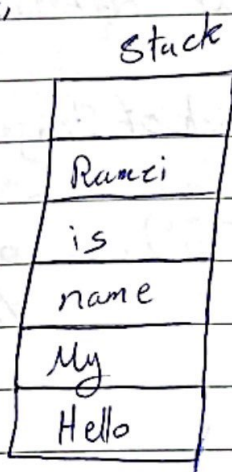 Stack
Ramzi
is
name
My
Hello